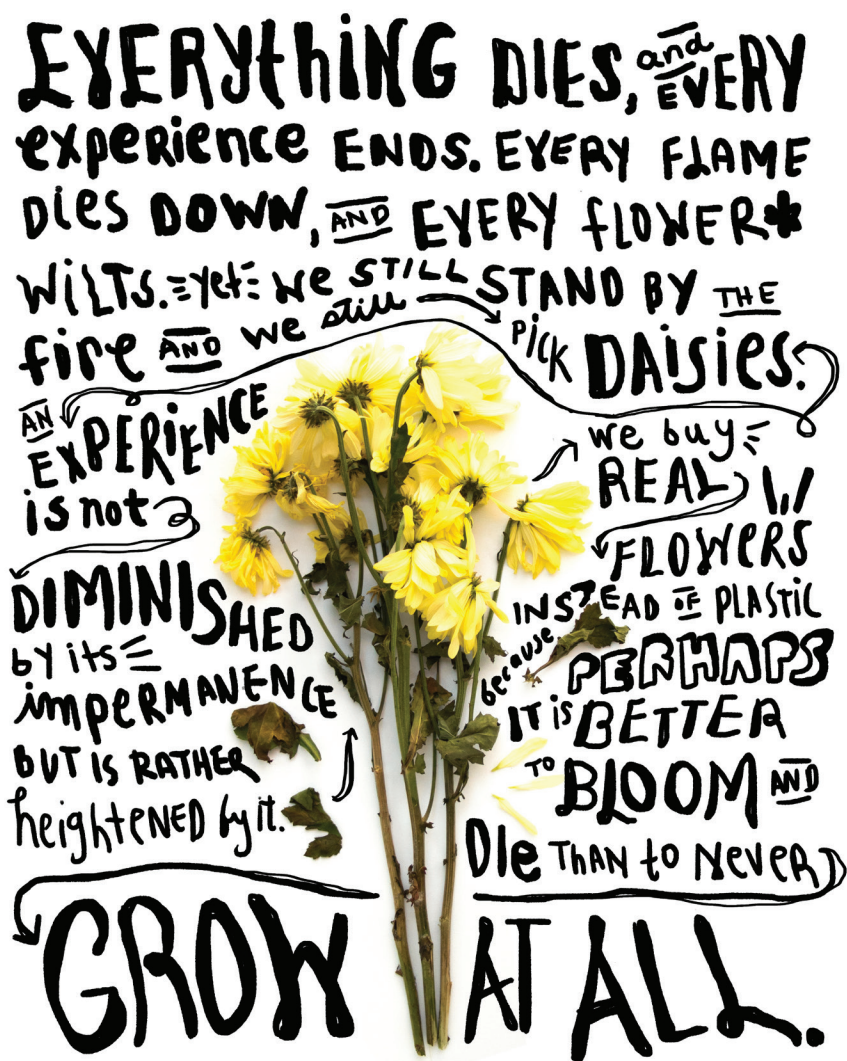 EVERYthiNG DIES, and EVERY
experience ENDS. EVERY FLAME
Dies DOWN, AND EVERY fLOWER*
WiLTS. yet we STILL STAND BY THE
fire AND we still pick DAisiEs.
AN
EXPERiENCE
is not
DIMINISHED
by its
impeRMANENCE
BUT IS RATHER
heightENED by it.
we buy
REAL
FLOWeRS
INSTEAD OF PLASTIC
because PERHAPS
IT is BETTER
TO BLOOM AND
Die THAN to Never
GROW AT ALL.